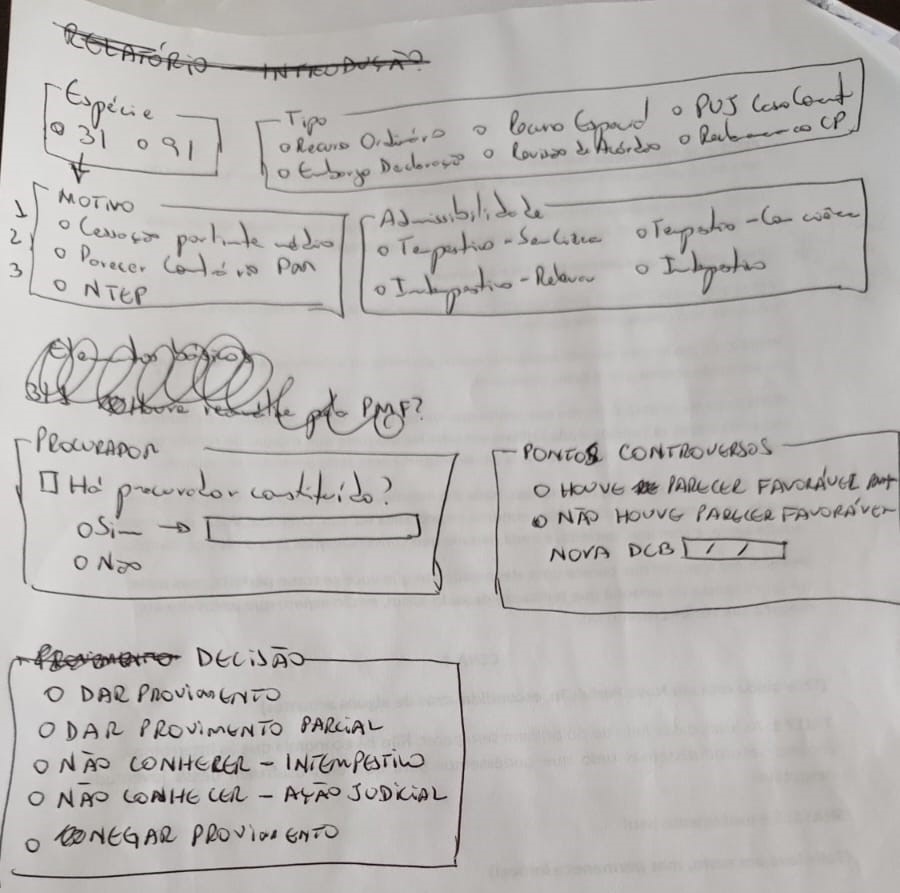 RELATÓRIO INTRODUÇÃO
Espécie
31 91
Tipo
Recurso Ordinário Recurso Especial PUJ Caso Conct
Embargo Declaração Revisão de Acórdão CP
MOTIVO
1 Cessação
2 Parecer Contrário
3 NTEP
Admissibilidade
Tempestivo - Tempestivo -
Intempestivo - Relevar Intempestivo
Elementos básicos
Houve pela PMF?
PROCURADOR
Há procurador constituído?
Sim →
Não
PONTOS CONTROVERSOS
HOUVE PARECER FAVORÁVEL
NÃO HOUVE PARECER FAVORÁVEL
NOVA DCB / /
DECISÃO
DAR PROVIMENTO
DAR PROVIMENTO PARCIAL
NÃO CONHECER - INTEMPESTIVO
NÃO CONHECER - AÇÃO JUDICIAL
NEGAR PROVIMENTO